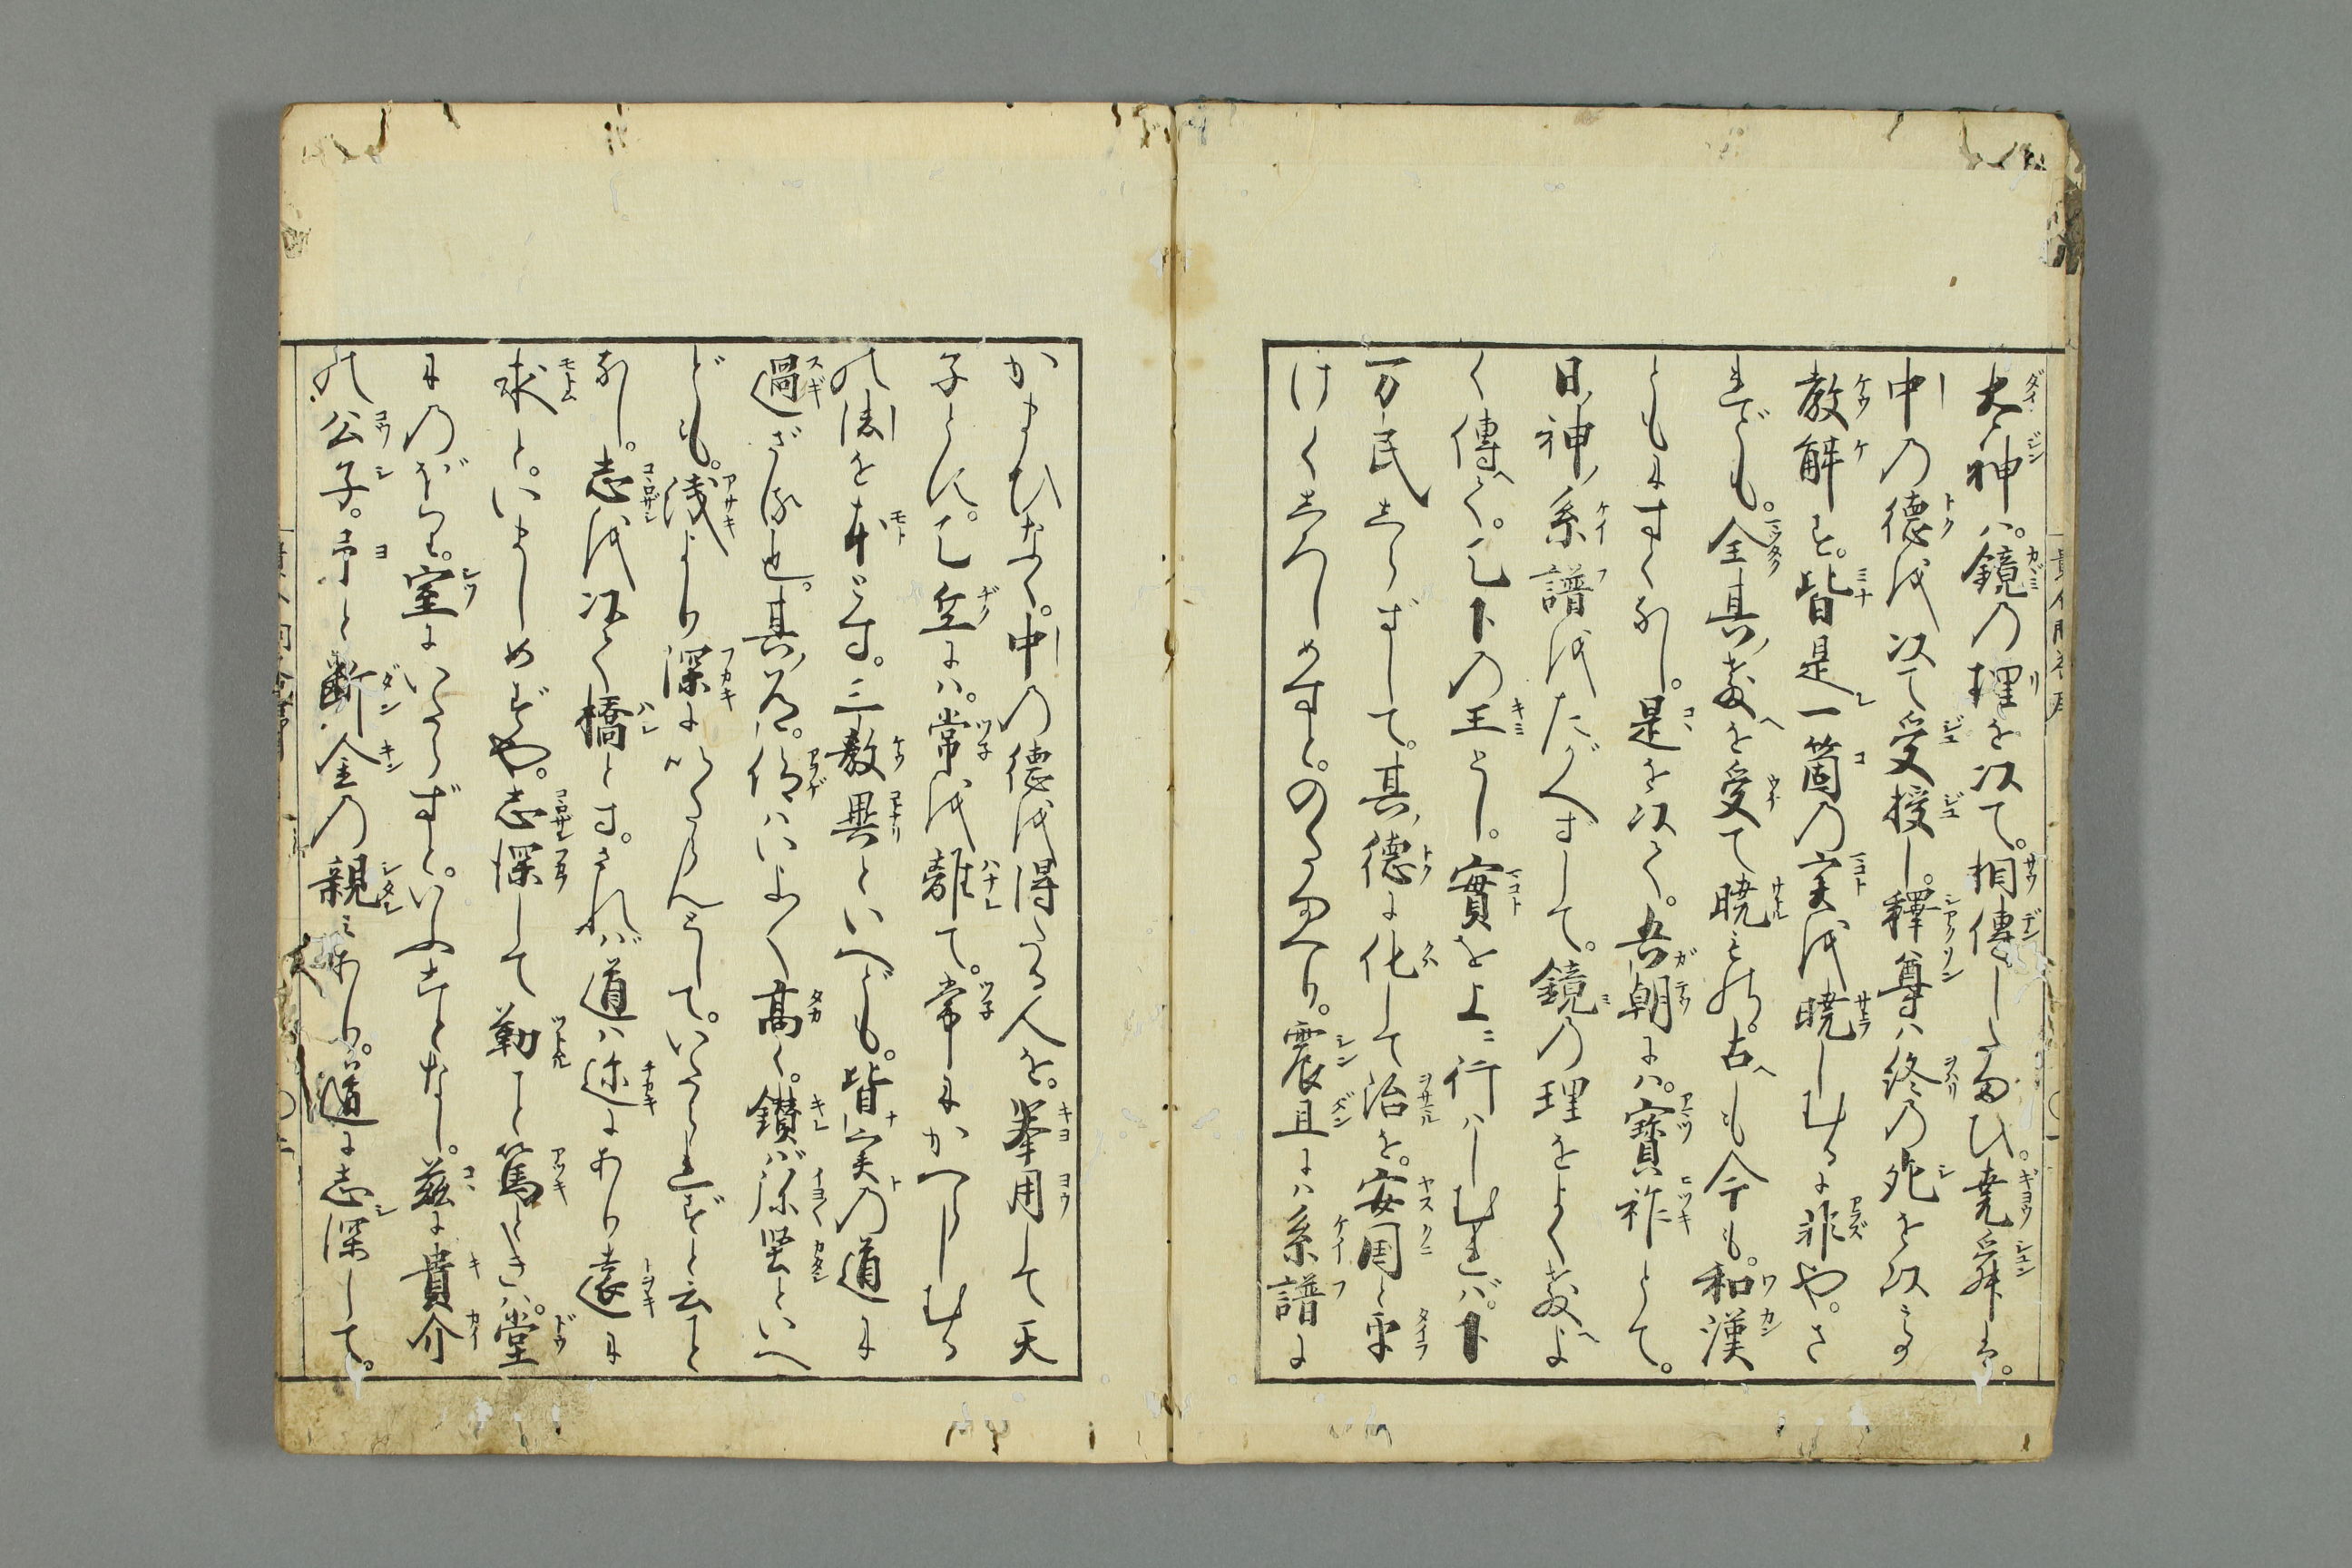 大神ハ。鏡の理を以て。相傳したまひ。堯舜ハ。
中の徳を以て受授し。釋尊ハ終の死を以て
教解す。皆是一箇の実を暁しむるに非や。さ
れども。全其教を受て暁ものハ。古へも今も。和漢
ともにすくなし。是を以て。吾朝にハ。寳祚とて。
日神ノ系譜をたがへずして。鏡の理をよく教よ
く傳へて。天下の王とし。實を上に行ハしむれバ。下
万民しらずして。其徳に化して治を。安国と平
けくしろしめすと。のたまへり。震旦にハ系譜に
かまひなく。中の徳を得たる人を。挙用して天
子とす。天竺にハ。常を離て。常にかへらしむる
の法を本とす。三教異といへども。皆実の道に
過ざる也。其道。仰ハいよ〱高く。鑚バ弥堅といへ
ども。浅より深に以たらんとして。いたられずと云こと
なし。志を以て橋とす。されバ道ハ近にあり遠に
求と。いましめずや。志深して勤こと篤ときハ。堂
にのぼり。室にいたらずと。いふことなし。茲に貴介
の公子。予と断金の親みあり。道に志深して。